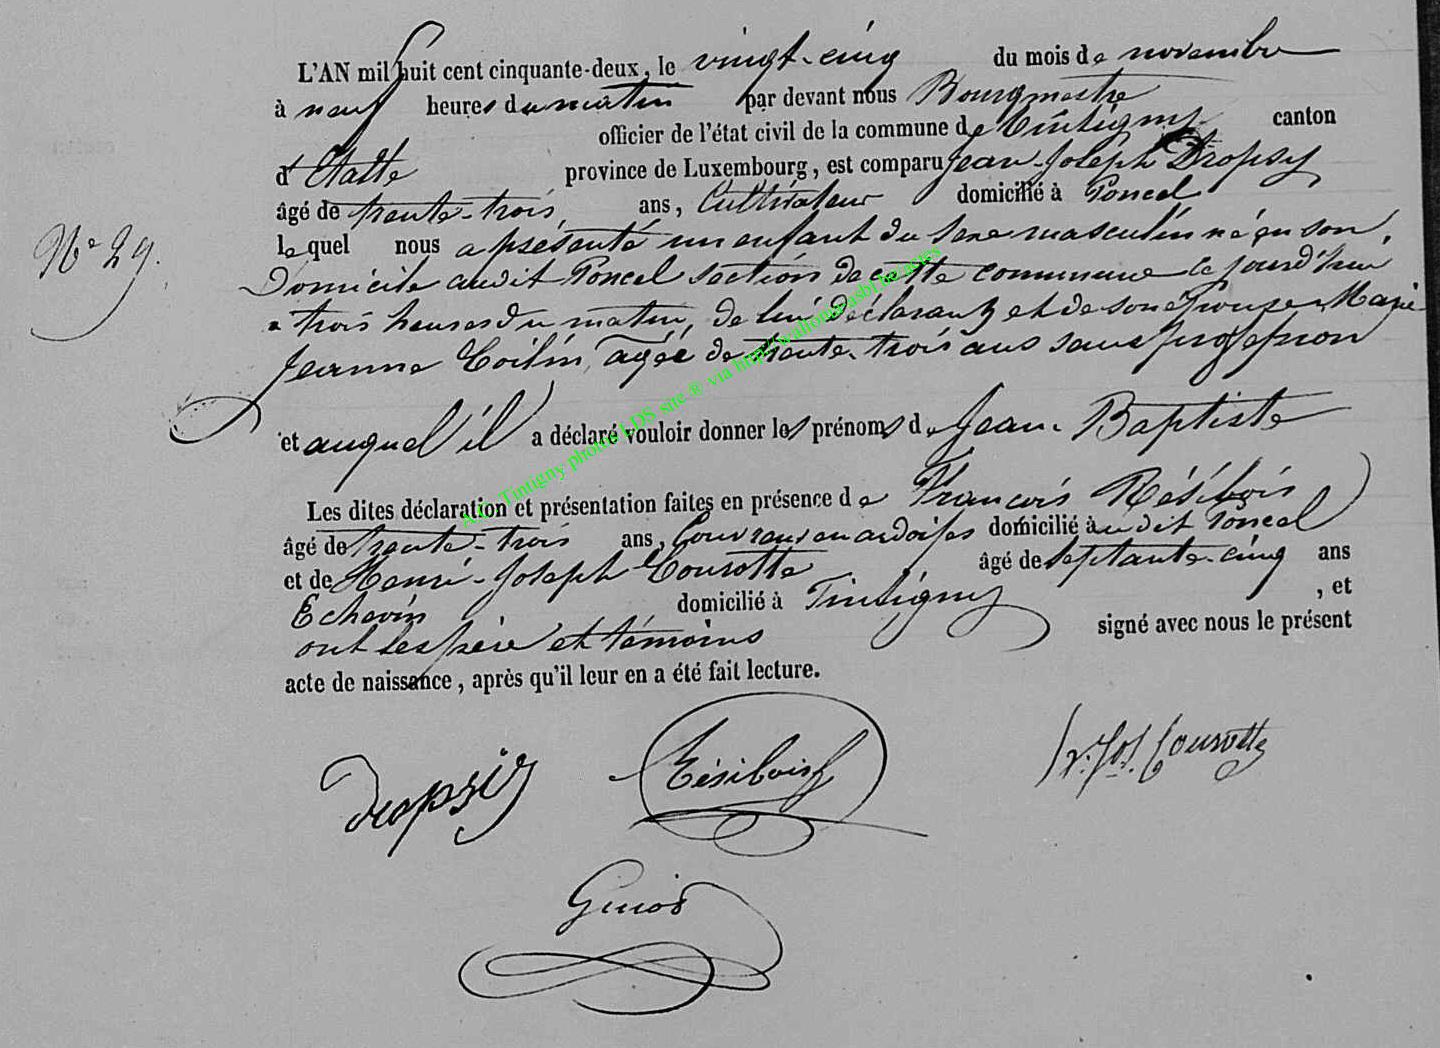 L'AN mil huit cent cinquante-deux, le vingt-cinq du mois de novembre
à neuf heures du matin par devant nous Bourgmestre
officier de l'état civil de la commune de Tintigny canton
d'Etalle province de Luxembourg, est comparu Jean-Joseph Dropsy
âgé de trente-trois ans, Cultivateur domicilié à Poncel
lequel nous a présenté un enfant du sexe masculin né en son
N° 29.
Domicile audit Poncel section de cette commune ce jourd'hui
à trois heures du matin, de lui déclarant et de son épouse Marie
Jeanne agée de trente-trois ans sans profession
et auquel il a déclaré vouloir donner les prénoms de Jean-Baptiste
A.C. Tintigny photos LDS site ® via http://wallonica
Les dites déclaration et présentation faites en présence de François Résibois
âgé de trente-trois ans, Couvreur en ardoises domicilié audit Poncel
et de Henri-Joseph Courotte âgé de septante-cinq ans
Echevin domicilié à Tintigny, et
ont les père et témoins signé avec nous le présent
acte de naissance, après qu'il leur en a été fait lecture.
Dropsy Résibois h. Jos. Courotte